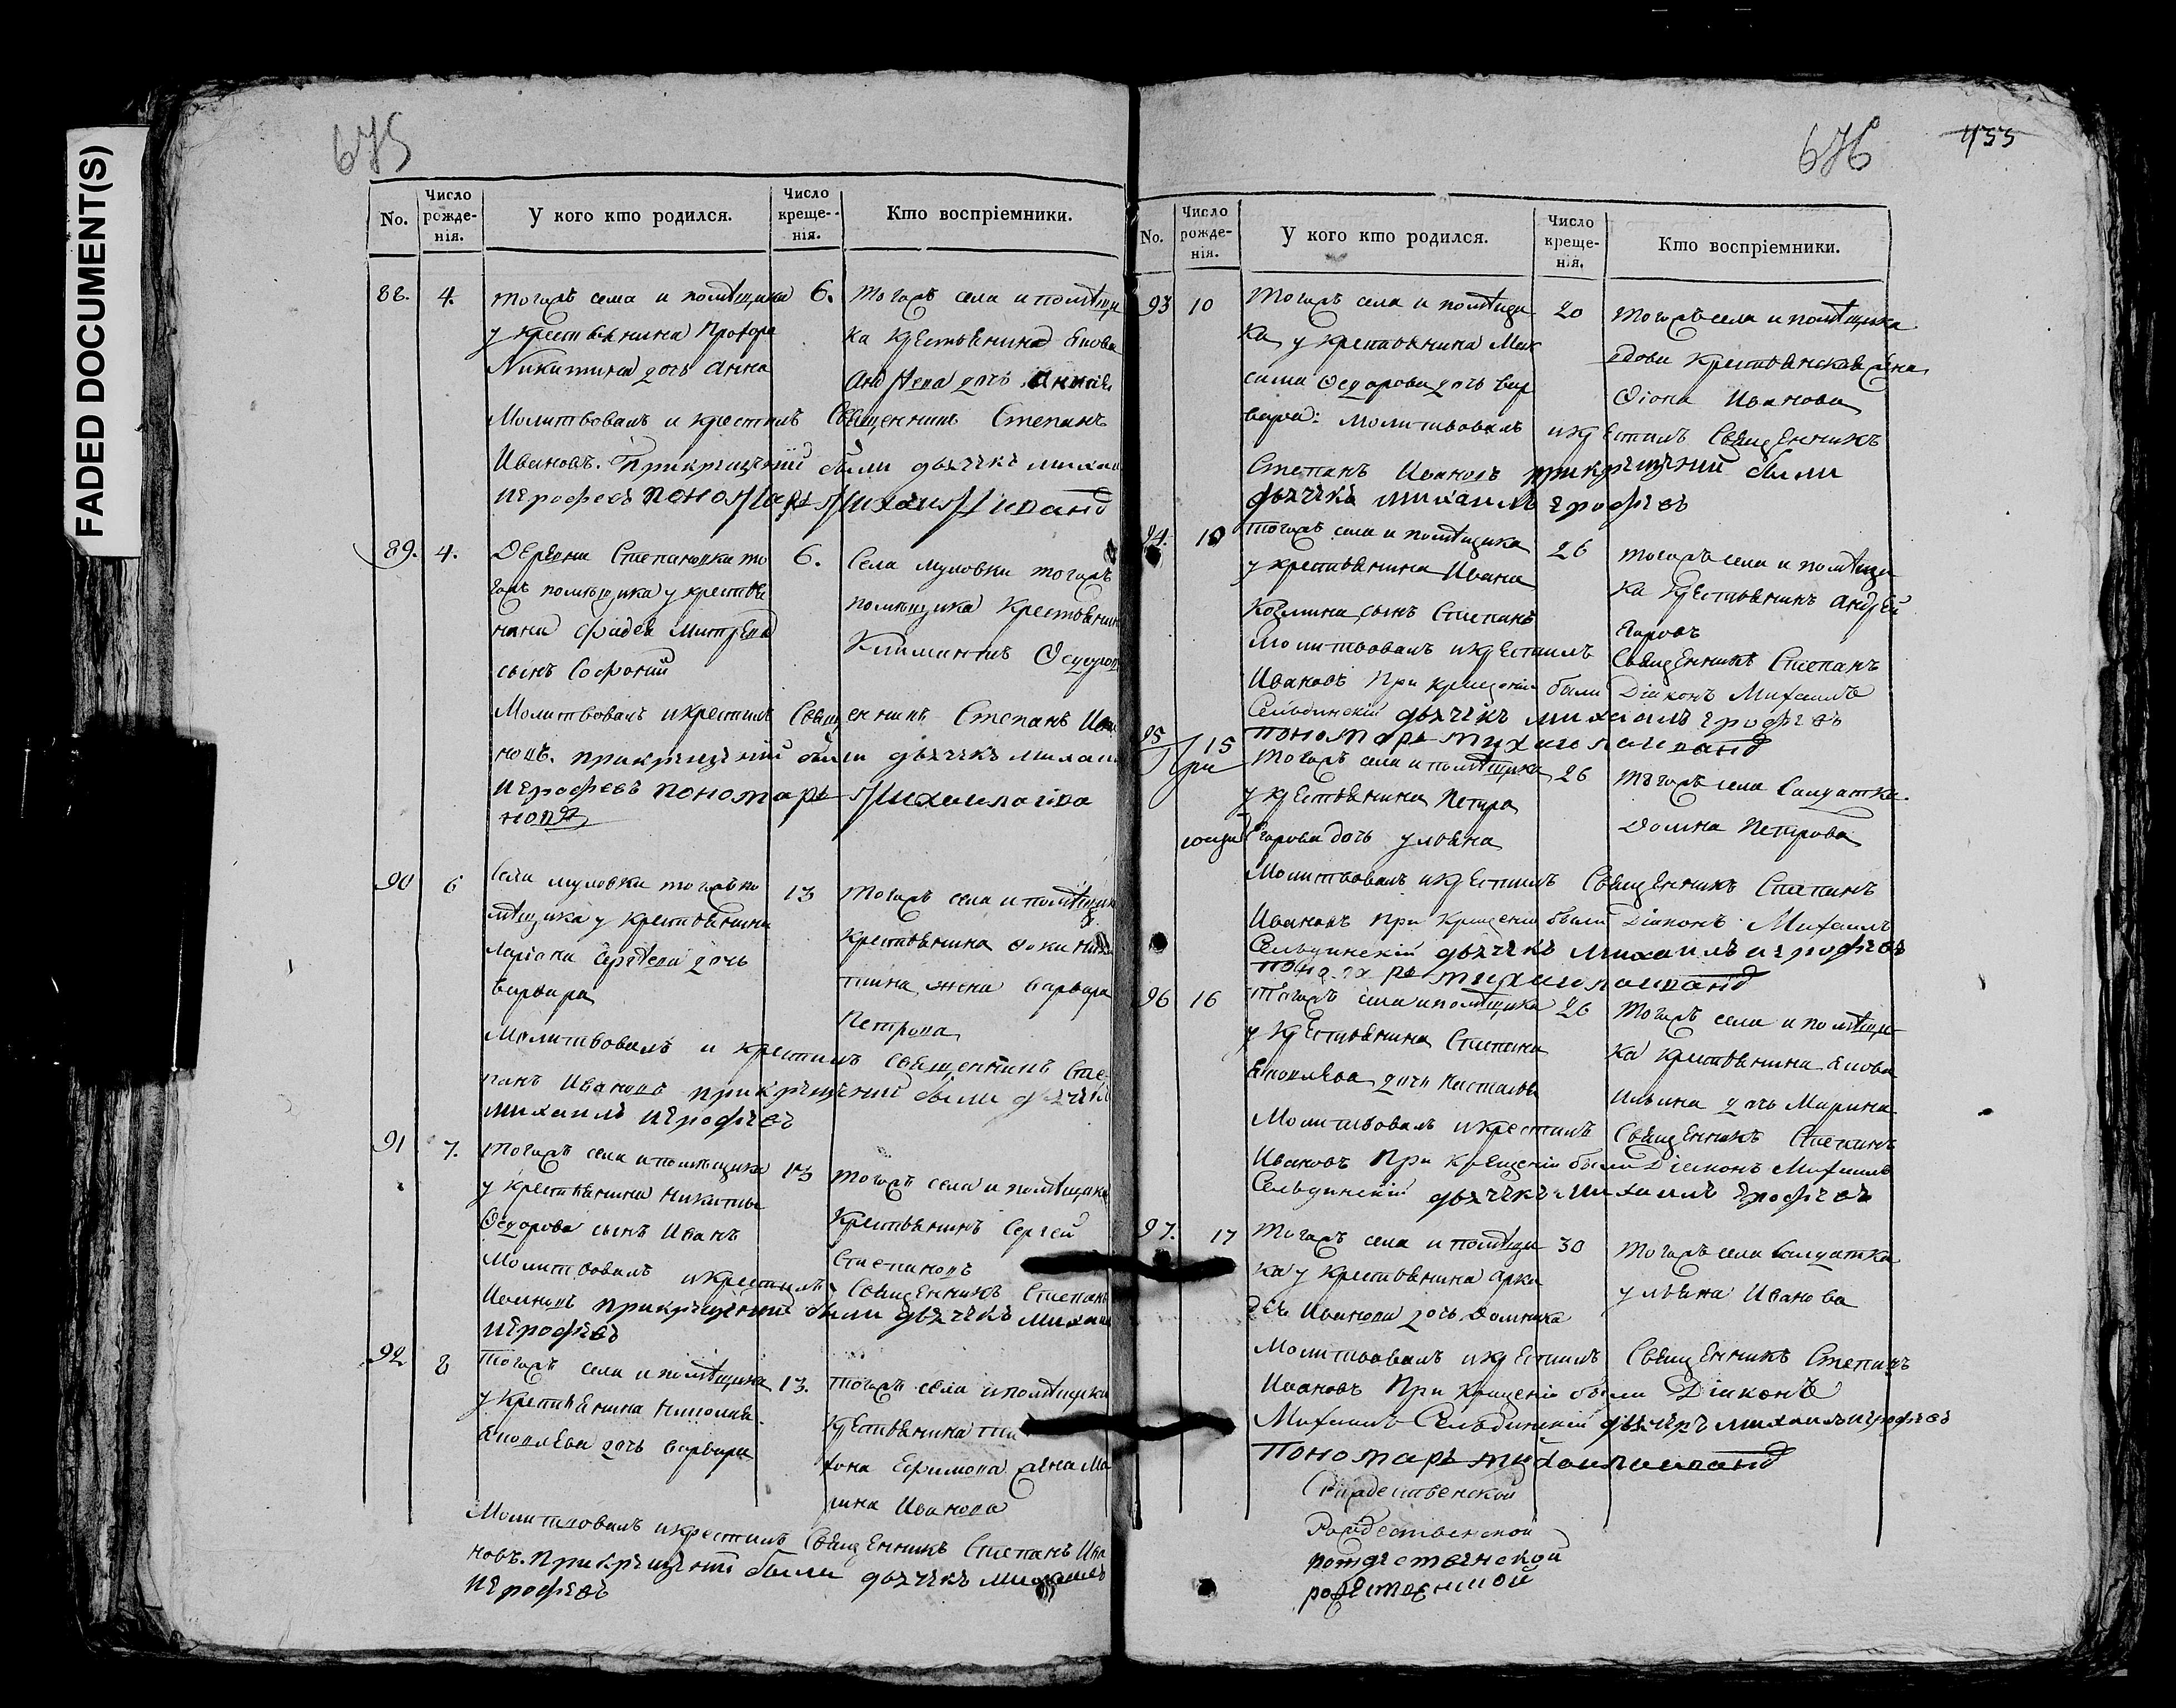 FADED DOCUMENT(S)
675
No.
Число рожде-нія.
У кого кто родился.
Число креще-нія.
Кто воспріемники.
88. 4.
тогожъ села и помѣщика
у крестьянина Прохора
Никитина дочь Анна
6.
тогожъ села и помѣщи
ка крестьянина Якова
дочь
Молитвовалъ и крестилъ Священникъ Степанъ
Ивановъ. При крещеніи были дьячекъ Михаи
Іерофеевъ пономарь
89. 4.
Деревни Степановки то
гожъ помѣщика у крестья
нина Фадея
сынъ Софоній
6.
Села Муловки тогожъ
помѣщика крестьянин
Климентъ Ѳедоров
Молитвовалъ и крестилъ Священникъ Степанъ Ива
новъ. при крещеніи были дьячекъ Михаи
Іерофеевъ пономарь
90 6
Села Муловки тогожъ по
мѣщика у крестьянина
Ларіона Сергѣева дочь
Варвара
13
тогожъ села и помѣщик
крестьянина
тина жена Варвара
Петрова
Молитвовалъ и крестилъ Священникъ Сте
панъ Ивановъ при крещеніи были дьячекъ
Михаилъ Іерофеевъ
91 7.
тогожъ села и помѣщика
у крестьянина Никиты
Ѳедорова сынъ Иванъ
13
тогожъ села и помѣщика
крестьянинъ Сергей
Степановъ
Молитвовалъ и крестилъ Священникъ Степанъ
Ивановъ при крещеніи были дьячекъ Михаи
Іерофеевъ
92 8
тогожъ села и помѣщика
у крестьянина Николая
Яковлева дочь Варвара
13.
тогожъ села и помѣщика
крестьянина
Ефимова жена Ма
рина Иванова
Молитвовалъ и крестилъ Священникъ Степанъ Ива
новъ. При крещеніи были дьячекъ Михаилъ
Іерофеевъ
676
433
No.
Число рожде-нія.
У кого кто родился.
Число креще-нія.
Кто воспріемники.
93 10
тогожъ села и помѣщи
ка у крестьянина Мак
сима Ѳедорова дочь Вар
вара: Молитвовалъ
20
тогожъ села и помѣщика
вдова крестьянская жена
Ѳіона Иванова
и крестилъ Священникъ
Степанъ Ивановъ при крещеніи были
дьячекъ Михаилъ Ерофеевъ
94. 10
тогожъ села и помѣщика
у крестьянина Ивана
Козмина сынъ Степанъ
26
тогожъ села и помѣщи
ка крестьянинъ Андрей
Егоровъ
Молитвовалъ и крестилъ Священникъ Степанъ
Ивановъ При крещеніи были Діаконъ Михаилъ
Сельдинскій дьячекъ Михаилъ Ерофеевъ
пономарь
95 15
тогожъ села и помѣщика
у крестьянина Петра
Егорова дочь Ульяна
26
тогожъ села Салдатка
Домна Петрова
Молитвовалъ и крестилъ Священникъ Степанъ
Ивановъ При крещеніи были Діаконъ Михаилъ
Сельдинскій дьячекъ Михаилъ Іерофеевъ
пономарь
96 16
тогожъ села и помѣщика
у крестьянина Степана
Яковлева дочь Настасья
26
тогожъ села и помѣщи
ка крестьянина Якова
Ильина дочь Марина
Молитвовалъ и крестилъ Священникъ Степанъ
Ивановъ При крещеніи были Діаконъ Михаилъ
Сельдинскій дьячекъ Михаилъ Ерофеевъ
97. 17
тогожъ села и помѣщи
ка у крестьянина Арка
дея Иванова дочь Домника
30
тогожъ села Салдатка
Ульяна Иванова
Молитвовалъ и крестилъ Священникъ Степанъ
Ивановъ При крещеніи были Діаконъ
Михаилъ Сельдинскій дьячекъ Михаилъ Іерофеевъ
Пономарь